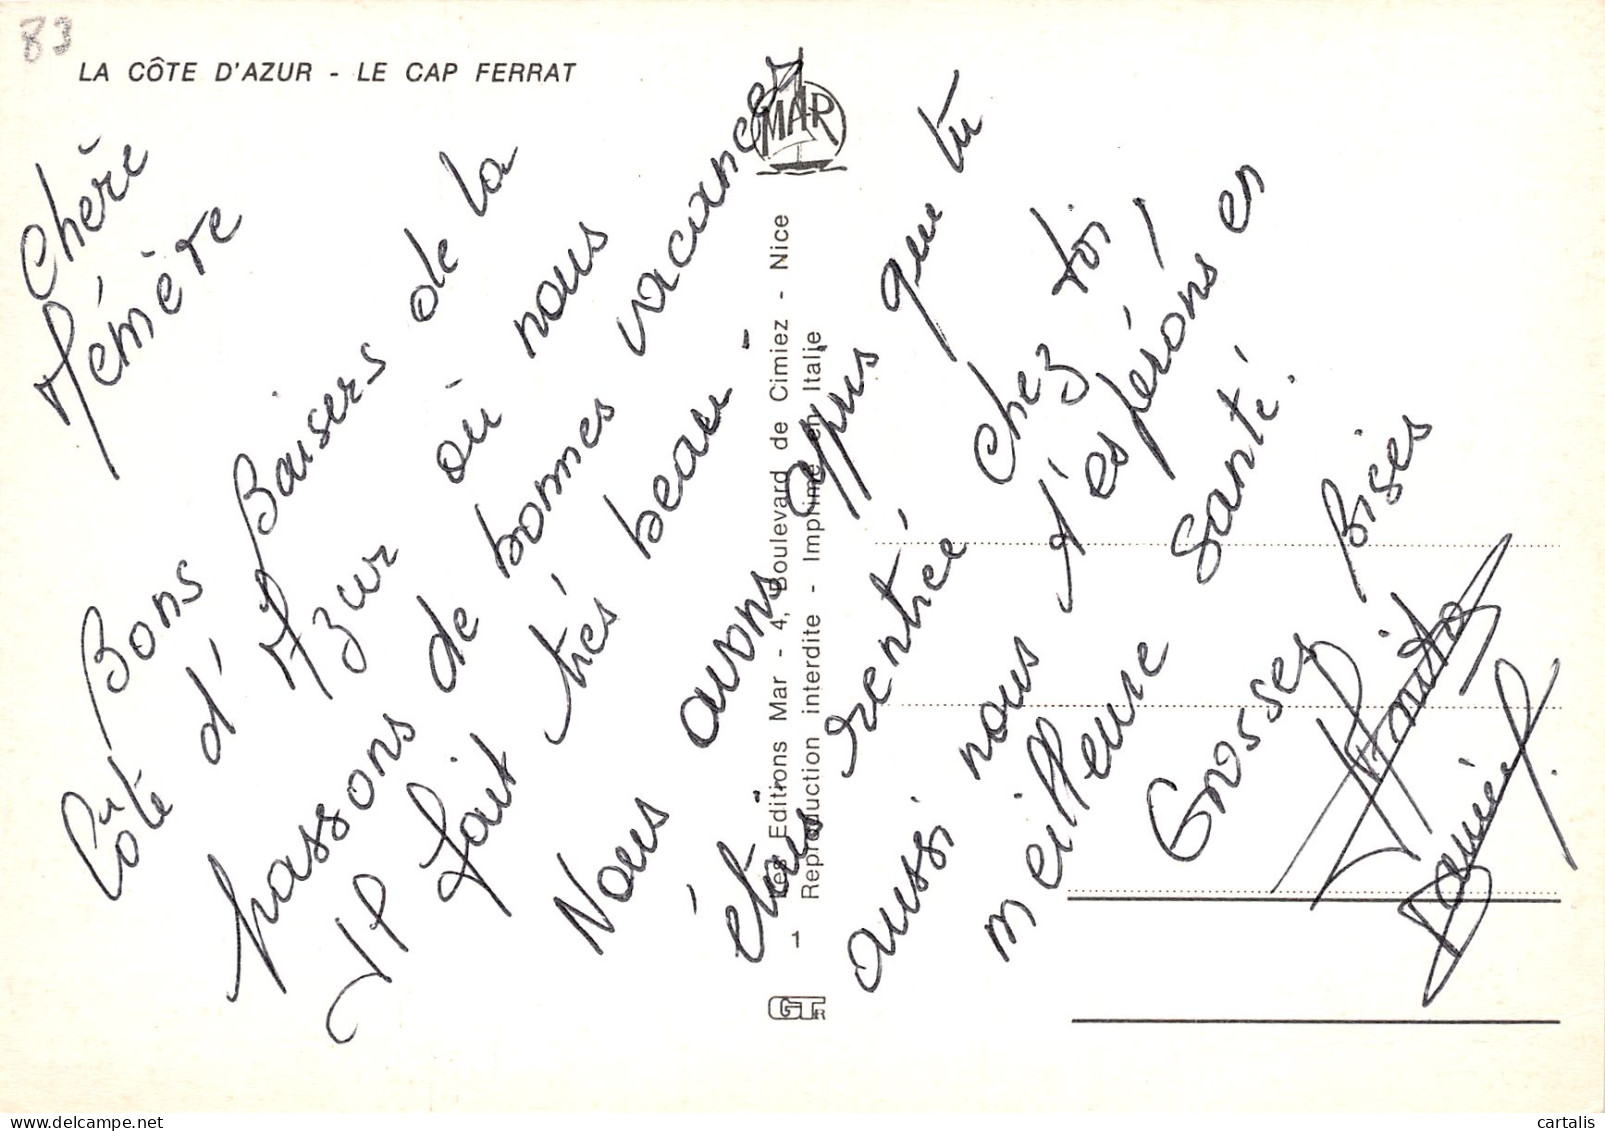 83
LA CÔTE D'AZUR - LE CAP FERRAT
MAR
Chère
Mémère
Bons Baisers de la
Côte d'Azur où nous
passons de bonnes vacances
Il fait très beau
Nous avons appris que tu
étais rentrée chez toi,
aussi nous t'espérons en
meilleure santé.
Grosses Bises
Daniel
Les Editions Mar - 4, Boulevard de Cimiez - Nice
Reproduction interdite - Imprimé en Italie
1
GTR
cartalis